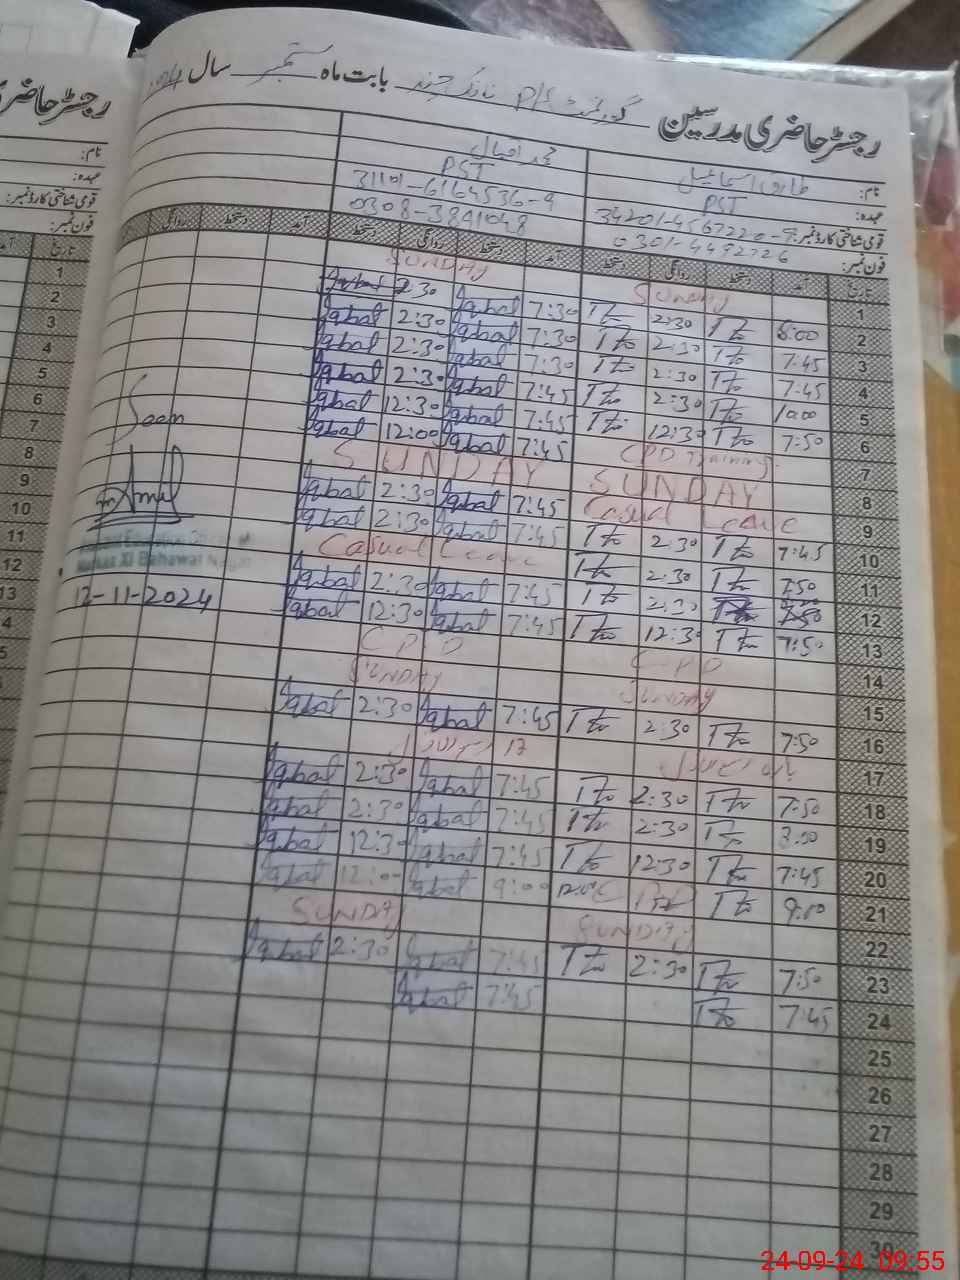 رجسٹر حاضری مدرسین گورنمنٹ P/S نانک چند بابت ماہ ستمبر سال
نام: طارق اسماعیل محمد اقبال
عہدہ: PST PST
قومی شناختی کارڈ نمبر: 34201-4567220-9 31101-6164536-9
فون نمبر: 0301-4492726 0308-3841048
تاریخ آمد دستخط روانگی دستخط آمد دستخط روانگی دستخط آمد دستخط روانگی
1 SUNDAY SUNDAY
2 8:00 2:30 7:30 Iqbal 2:30 Iqbal
3 7:45 2:30 7:30 Iqbal 2:30 Iqbal
4 7:45 2:30 7:30 Iqbal 2:30 Iqbal
5 10:00 2:30 7:45 Iqbal 2:30 Iqbal
6 7:50 12:30 7:45 Iqbal 12:30 Iqbal
7 CPD Training 7:45 Iqbal 12:00 Iqbal
8 SUNDAY SUNDAY
9 Casual Leave 7:45 Iqbal 2:30 Iqbal
10 7:45 2:30 7:45 Iqbal 2:30 Iqbal
11 7:50 2:30 Casual Leave
12 7:50 2:30 7:45 Iqbal 2:30 Iqbal
13 7:50 12:30 7:45 Iqbal 12:30 Iqbal
14 CPD CPD
15 SUNDAY SUNDAY
16 7:50 2:30 7:45 Iqbal 2:30 Iqbal
17 بارہ ربیع الاول 12 ربیع الاول
18 7:50 2:30 7:45 Iqbal 2:30 Iqbal
19 8:00 2:30 7:45 Iqbal 2:30 Iqbal
20 7:45 12:30 7:45 Iqbal 12:30 Iqbal
21 9:00 CPD 12:00 9:00 Iqbal 12:00 Iqbal
22 SUNDAY SUNDAY
23 7:50 2:30 7:45 Iqbal 2:30 Iqbal
24 7:45 7:45 Iqbal
25
26
27
28
29
30
Seen
Markaz XI Bahawal Nagar
12-11-2024
رجسٹر حاضری
نام:
عہدہ:
قومی شناختی کارڈ نمبر:
فون نمبر:
تاریخ
1
2
3
4
5
6
7
8
9
10
11
12
13
24-09-24 09:55